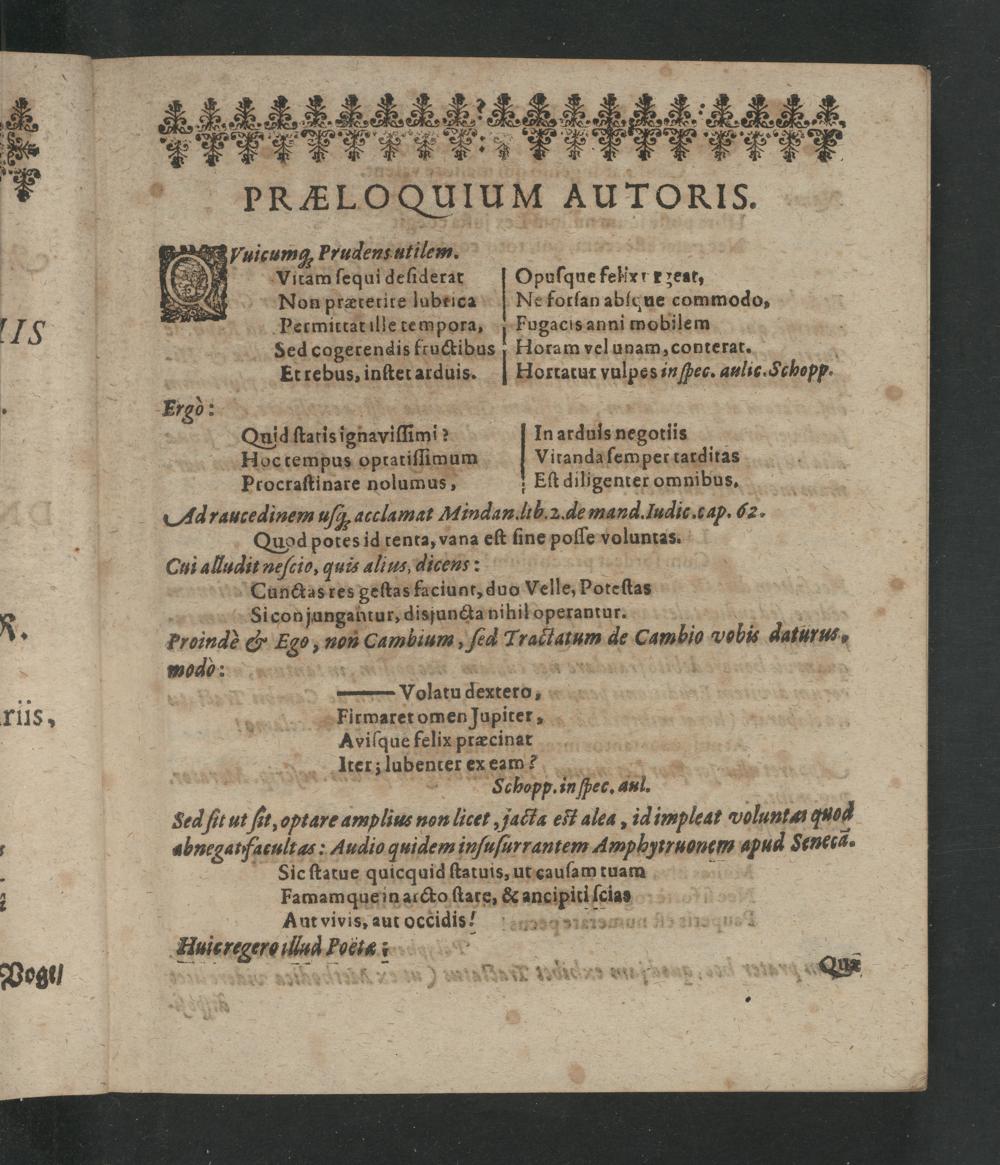 PRÆLOQUIUM AUTORIS.
QVuicumq; Prudens utilem.
Vitam sequi desiderat
Non præterire lubrica
Permittat ille tempora,
Sed cogerendis fructibus
Et rebus, instet arduis.
Opusque felix
Ne forsan absque commodo,
Fugacis anni mobilem
Horam vel unam, conterat.
Hortatur vulpes in spec. aulic. Schopp.
Ergò:
Quid statis ignavissimi?
Hoc tempus optatissimum
Procrastinare nolumus,
In arduis negotiis
Vitanda semper tarditas
Est diligenter omnibus.
Ad raucedinem usq; acclamat Mindan. lib. 2. de mand. Iudic. cap. 62.
Quod potes id tenta, vana est sine posse voluntas.
Cui alludit nescio, quis alius, dicens:
Cunctas res gestas faciunt, duo Velle, Potestas
Si conjungantur, disjuncta nihil operantur.
Proindè & Ego, non Cambium, sed Tractatum de Cambio vobis daturus,
modò:
—— Volatu dextero,
Firmaret omen Jupiter,
Avisque felix præcinat
Iter; lubenter ex eam?
Schopp. in spec. aul.
Sed sit ut sit, optare amplius non licet, jacta est alea, id impleat voluntas quod
abnegat facultas: Audio quidem insusurrantem Amphytruonem apud Senecã.
Sic statue quicquid statuis, ut causam tuam
Famamque in arcto stare, & ancipiti scias
Aut vivis, aut occidis!
Huic regero illud Poëtæ:
Quæ
MIS
R.
riis,
Vogel